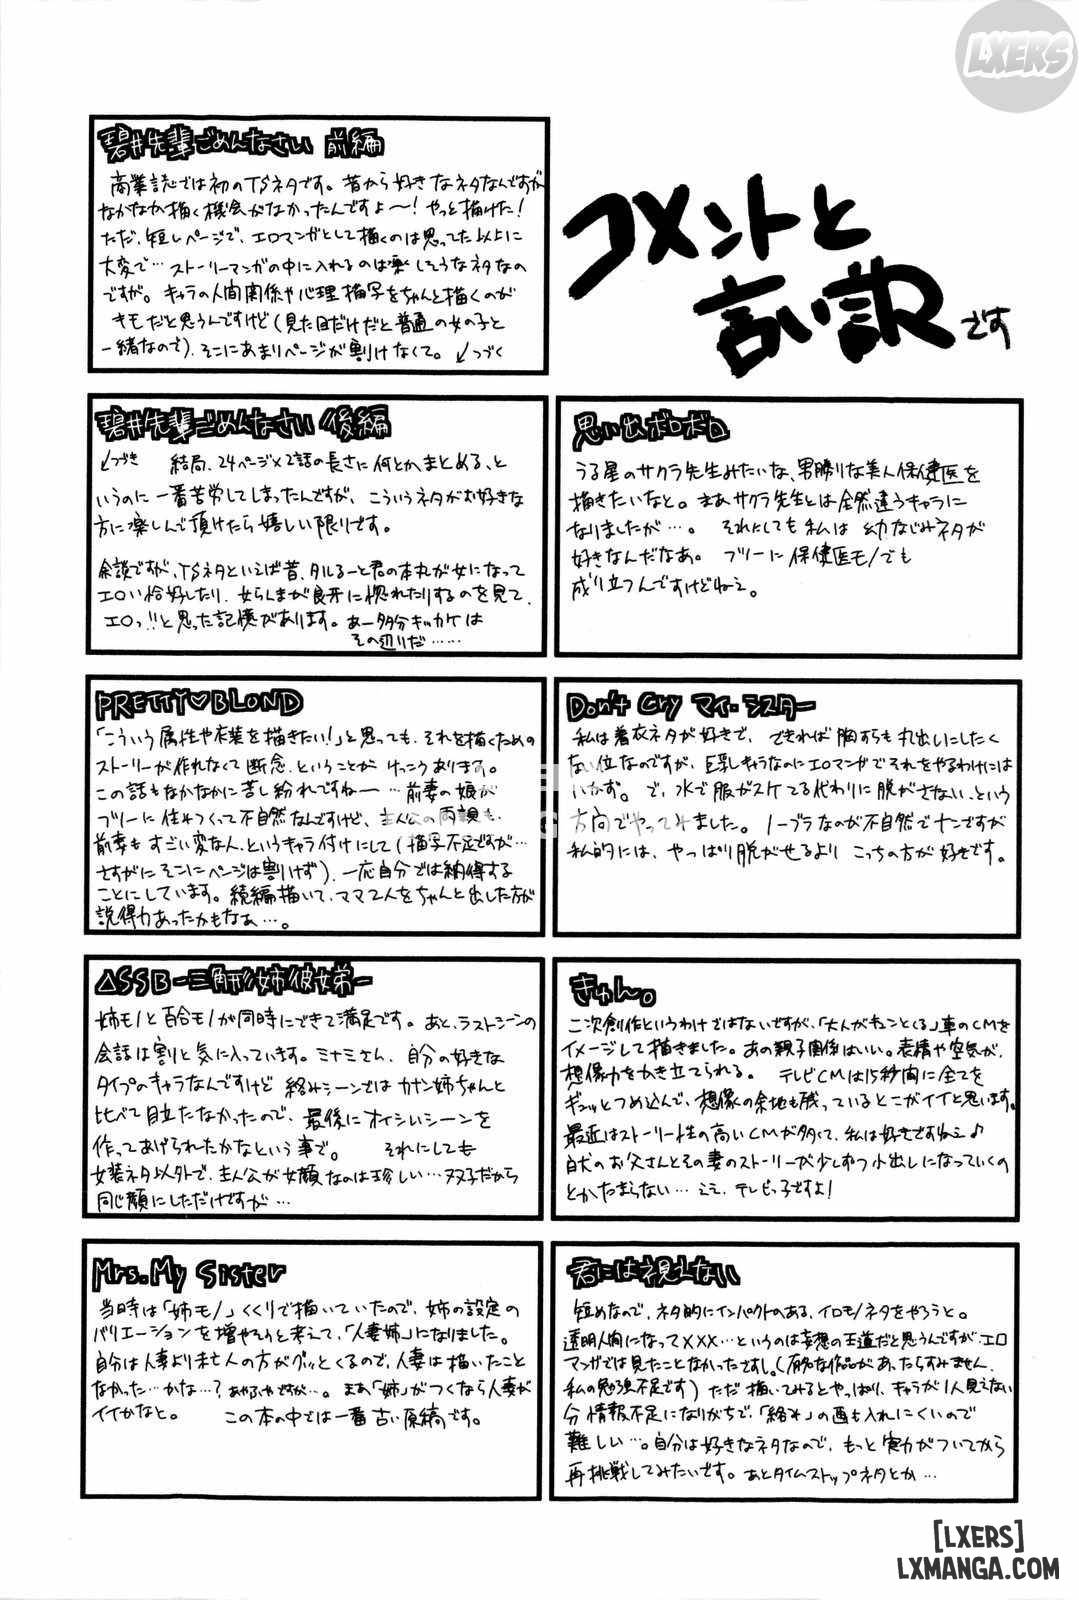 LXERS
コメントと
言い訳です
碧井先輩ごめんなさい 前編
商業誌では初のTSネタです。昔から好きなネタなんですが
なかなか描く機会がなかったんですよ〜!やっと描けた!
ただ、短いページで、エロマンガとして描くのは思ってた以上に
大変で…ストーリーマンガの中に入れるのは楽しそうなネタなの
ですが。キャラの人間関係や心理描写をちゃんと描くのが
キモだと思うんですけど(見た目だけだと普通の女の子と
一緒なので)、そこにあまりページが割けなくて。↙つづく
碧井先輩ごめんなさい 後編
↙つづき 結局、24ページ×2話の長さに何とかまとめる、と
いうのに一番苦労してしまったんですが、こういうネタがお好きな
方に楽しんで頂けたら嬉しい限りです。
余談ですが、TSネタといえば昔、タルるーと君の本丸が女になって
エロい恰好したり、女らんまが良牙に惚れたりするのを見て、
エロっ!!と思った記憶があります。あー多分キッカケは
その辺りだ……
思い出ボロボロ
うる星のサクラ先生みたいな、男勝りな美人保健医を
描きたいなと。まあサクラ先生とは全然違うキャラに
なりましたが…。それにしても私は幼なじみネタが
好きなんだなあ。フツーに保健医モノでも
成り立つんですけどねえ。
PRETTY♡BLOND
「こういう属性や衣装を描きたい!」と思っても、それを描くための
ストーリーが作れなくて断念、ということがけっこうあります。
この話もなかなかに苦し紛れですねー…前妻の娘が
フツーに住みつくって不自然なんですけど、主人公の両親も、
前妻もすごい変な人、というキャラ付けにして(描写不足ですが…
さすがにそこにページは割けず)、一応自分では納得する
ことにしています。続編描いて、ママ2人をちゃんと出した方が
説得力あったかもなぁ…。
Don't Cry マイ・シスター
私は着衣ネタが好きで、できれば胸すらも丸出しにしたく
ない位なのですが、巨乳キャラなのにエロマンガでそれをやるわけには
いかず。で、水で服がスケてる代わりに脱がさない、という
方向でやってみました。ノーブラなのが不自然でナンですが
私的には、やっぱり脱がせるよりこっちの方が好きです。
△SSB-三角形姉彼弟-
姉モノと百合モノが同時にできて満足です。あと、ラストシーンの
会話は割と気に入っています。ミナミさん、自分の好きな
タイプのキャラなんですけど絡みシーンではカナン姉ちゃんと
比べて目立たなかったので、最後にオイシイシーンを
作ってあげられたかなという事で。それにしても
女装ネタ以外で、主人公が女顔なのは珍しい…双子だから
同じ顔にしただけですが…
きゅん。
二次創作というわけではないですが、「大人がキュンとくる」車のCMを
イメージして描きました。あの親子関係はいい。表情や空気が、
想像力をかき立てられる。テレビCMは15秒間に全てを
ギュッとつめ込んで、想像の余地も残っているとこがイイと思います。
最近はストーリー性の高いCMが多くて、私は好きですねえ♪
白犬のお父さんとその妻のストーリーが少しずつ小出しになっていくの
とかたまらない…ええ、テレビっ子ですよ!
Mrs. My Sister
当時は「姉モノ」くくりで描いていたので、姉の設定の
バリエーションを増やそうと考えて、「人妻姉」になりました。
自分は人妻より未亡人の方がグッとくるので、人妻は描いたこと
なかった…かな…?あやふやですが…。まあ「姉」がつくなら人妻が
イイかなと。この本の中では一番古い原稿です。
君には視えない
短めなので、ネタ的にインパクトのある、イロモノネタをやろうと。
透明人間になって×××…というのは妄想の王道だと思うんですが、エロ
マンガでは見たことなかったですし。(有名な作品があったらすみません、
私の勉強不足です)ただ描いてみるとやっぱり、キャラが1人見えない
分情報不足になりがちで、「絡み」の画も入れにくいので
難しい…。自分は好きなネタなので、もっと実力がついてから
再挑戦してみたいです。あとタイムストップネタとか…
[LXERS]
LXMANGA.COM